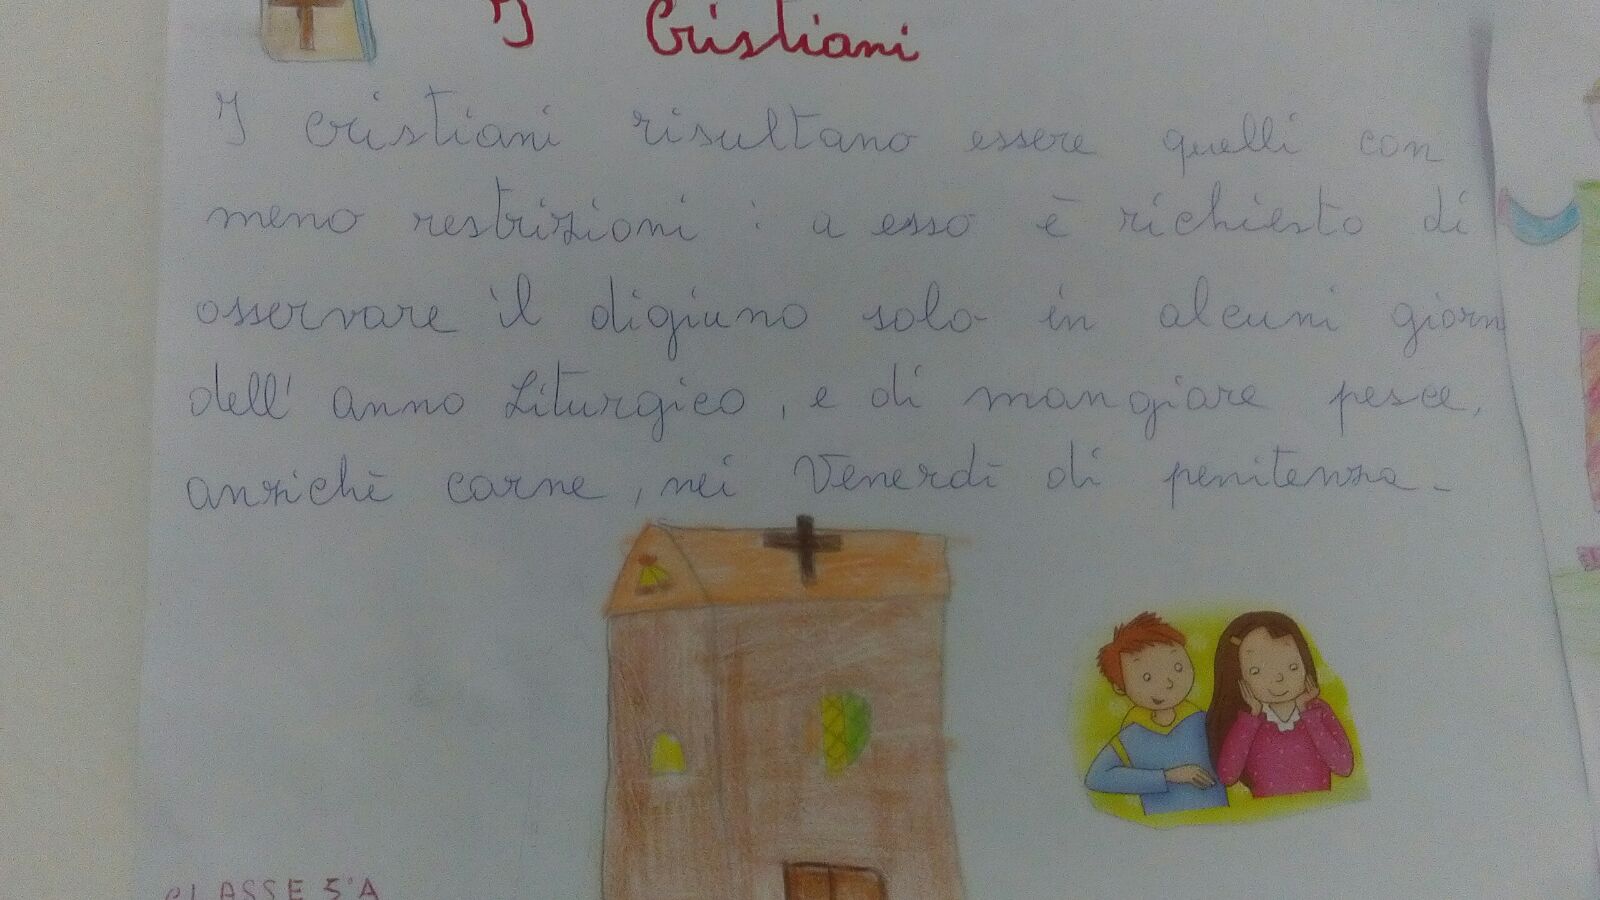 I Cristiani
I cristiani risultano essere quelli con
meno restrizioni : a esso è richiesto di
osservare il digiuno solo in alcuni giorn
dell' anno Liturgico, e di mangiare pesce,
anzichè carne, nei Venerdì di penitenza.
CLASSE 5°A